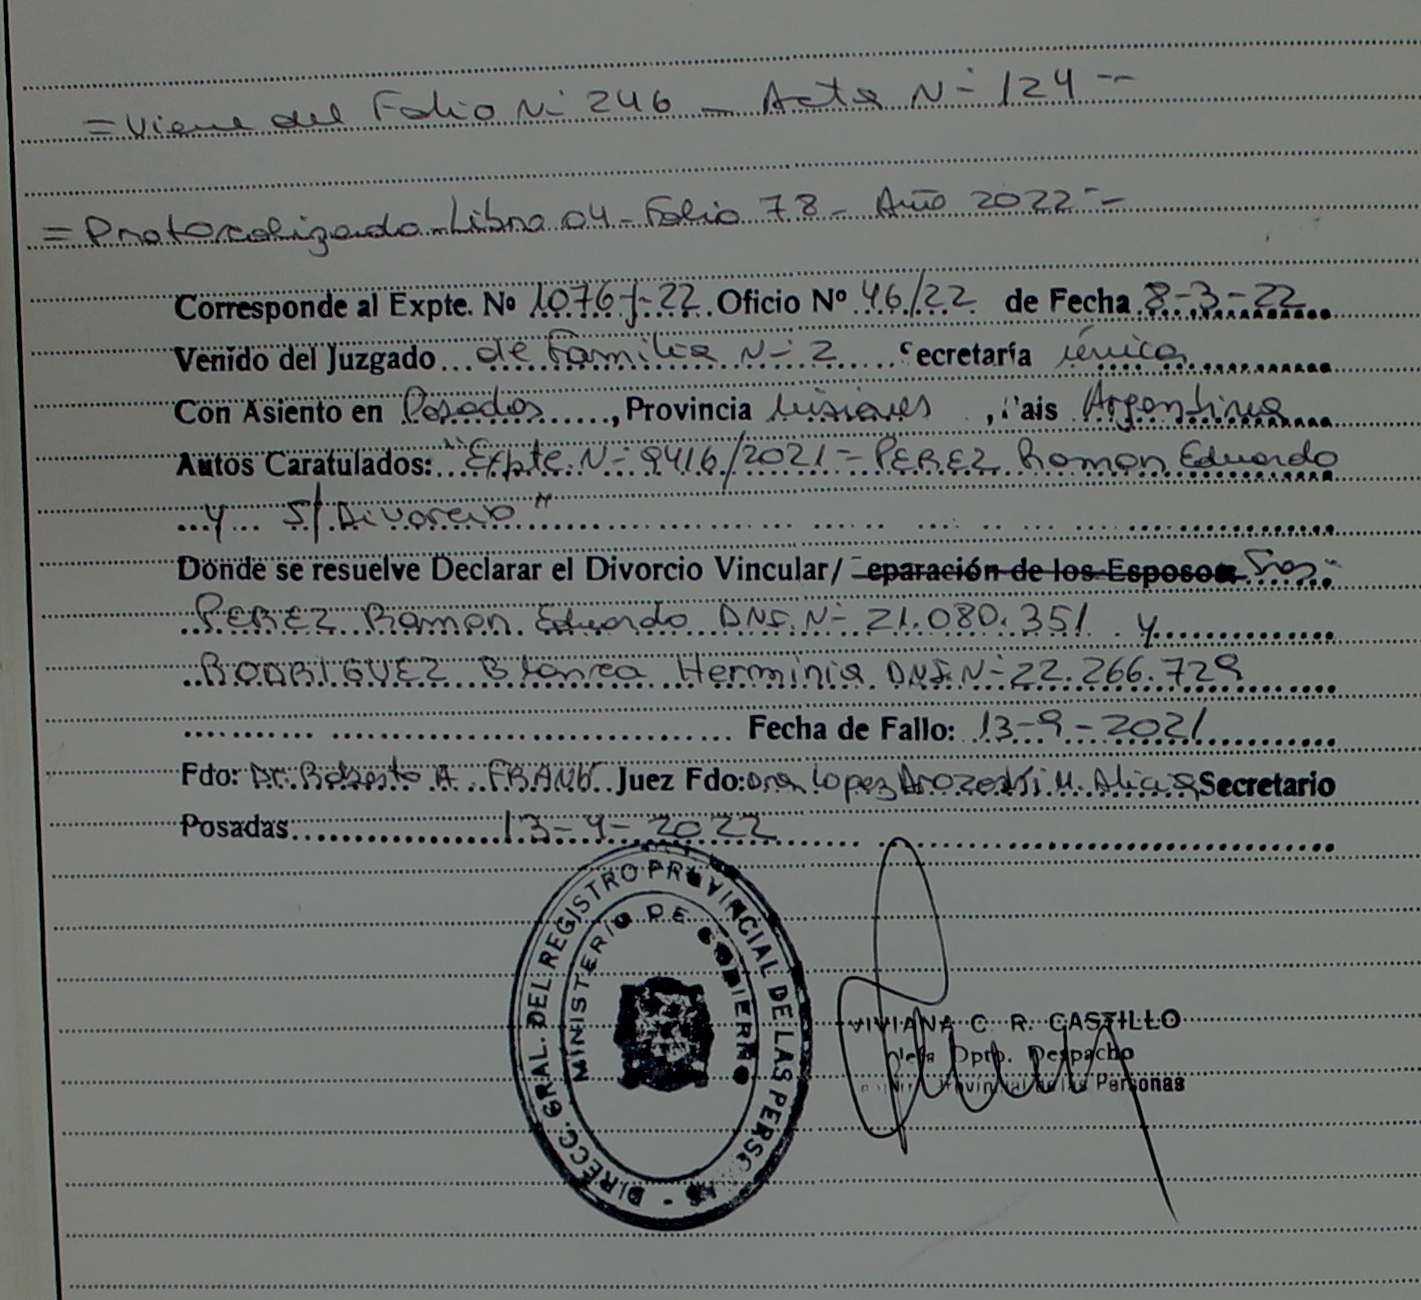 = Viene del Folio N- 246 - Acta N- 124 --
= Protocolizado - Libro 04 - Folio 78 - Año 2022 --
Corresponde al Expte. Nº 1076-J-22 Oficio Nº 46/22 de Fecha 8-3-22
Venido del Juzgado de Familia N- 2 Secretaría única
Con Asiento en Posadas, Provincia Misiones, Pais Argentina
Autos Caratulados: "Expte. N- 9416/2021 - PEREZ Ramon Eduardo
y S/ Divorcio"
Donde se resuelve Declarar el Divorcio Vincular/ eparación de los Esposos Sres.
PEREZ Ramon Eduardo DNI. N- 21.080.351 y
RODRIGUEZ Blanca Herminia DNI. N- 22.266.729
Fecha de Fallo: 13-9-2021
Fdo: Dr. Roberto A. Juez Fdo: Dra Lopez M. Alicia Secretario
Posadas 13-4-2022
DIRECC. GRAL. DEL REGISTRO PROVINCIAL DE LAS PERSONAS -
MINISTERIO DE GOBIERNO
VIVIANA C. R. CASTILLO
Jefa Dpto. Despacho
Provincial de las Personas